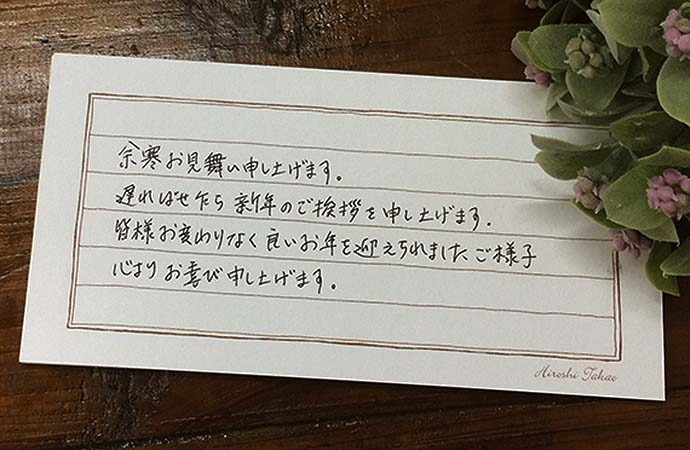 余寒お見舞い申し上げます。
遅ればせ乍ら新年のご挨拶を申し上げます.
皆様お変わりなく良いお年を迎えられましたご様子
心よりお喜び申し上げます。
Hiroshi Takao